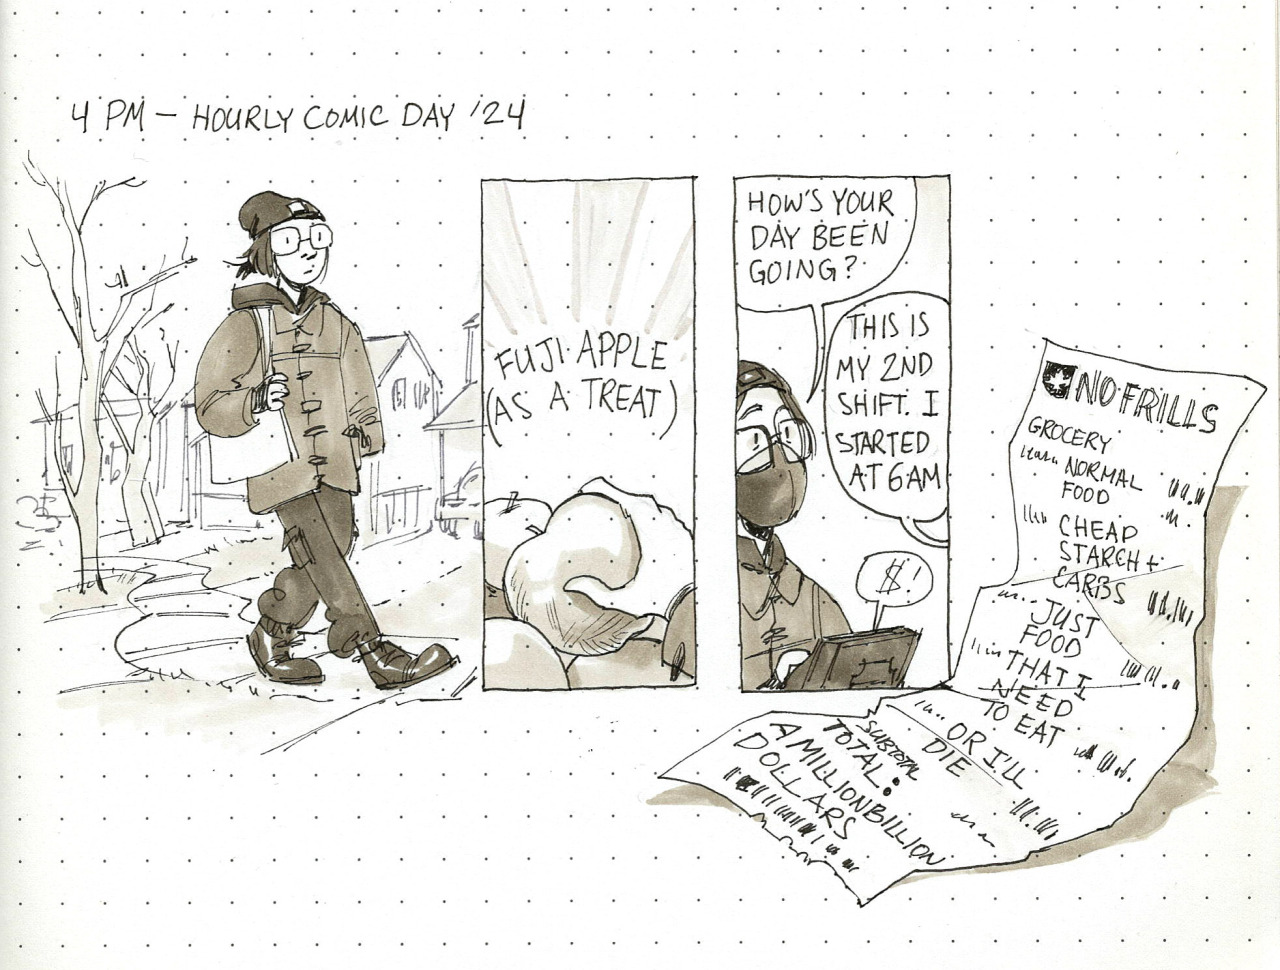 4 PM — HOURLY COMIC DAY '24
FUJI APPLE
(AS A TREAT)
HOW'S YOUR
DAY BEEN
GOING?
THIS IS
MY 2ND
SHIFT. I
STARTED
AT 6AM
$!
NO FRILLS
GROCERY
NORMAL
FOOD
CHEAP
STARCH +
CARBS
JUST
FOOD
THAT I
NEED
TO EAT
OR I'LL
DIE
SUBTOTAL
TOTAL:
A MILLIONBILLION
DOLLARS